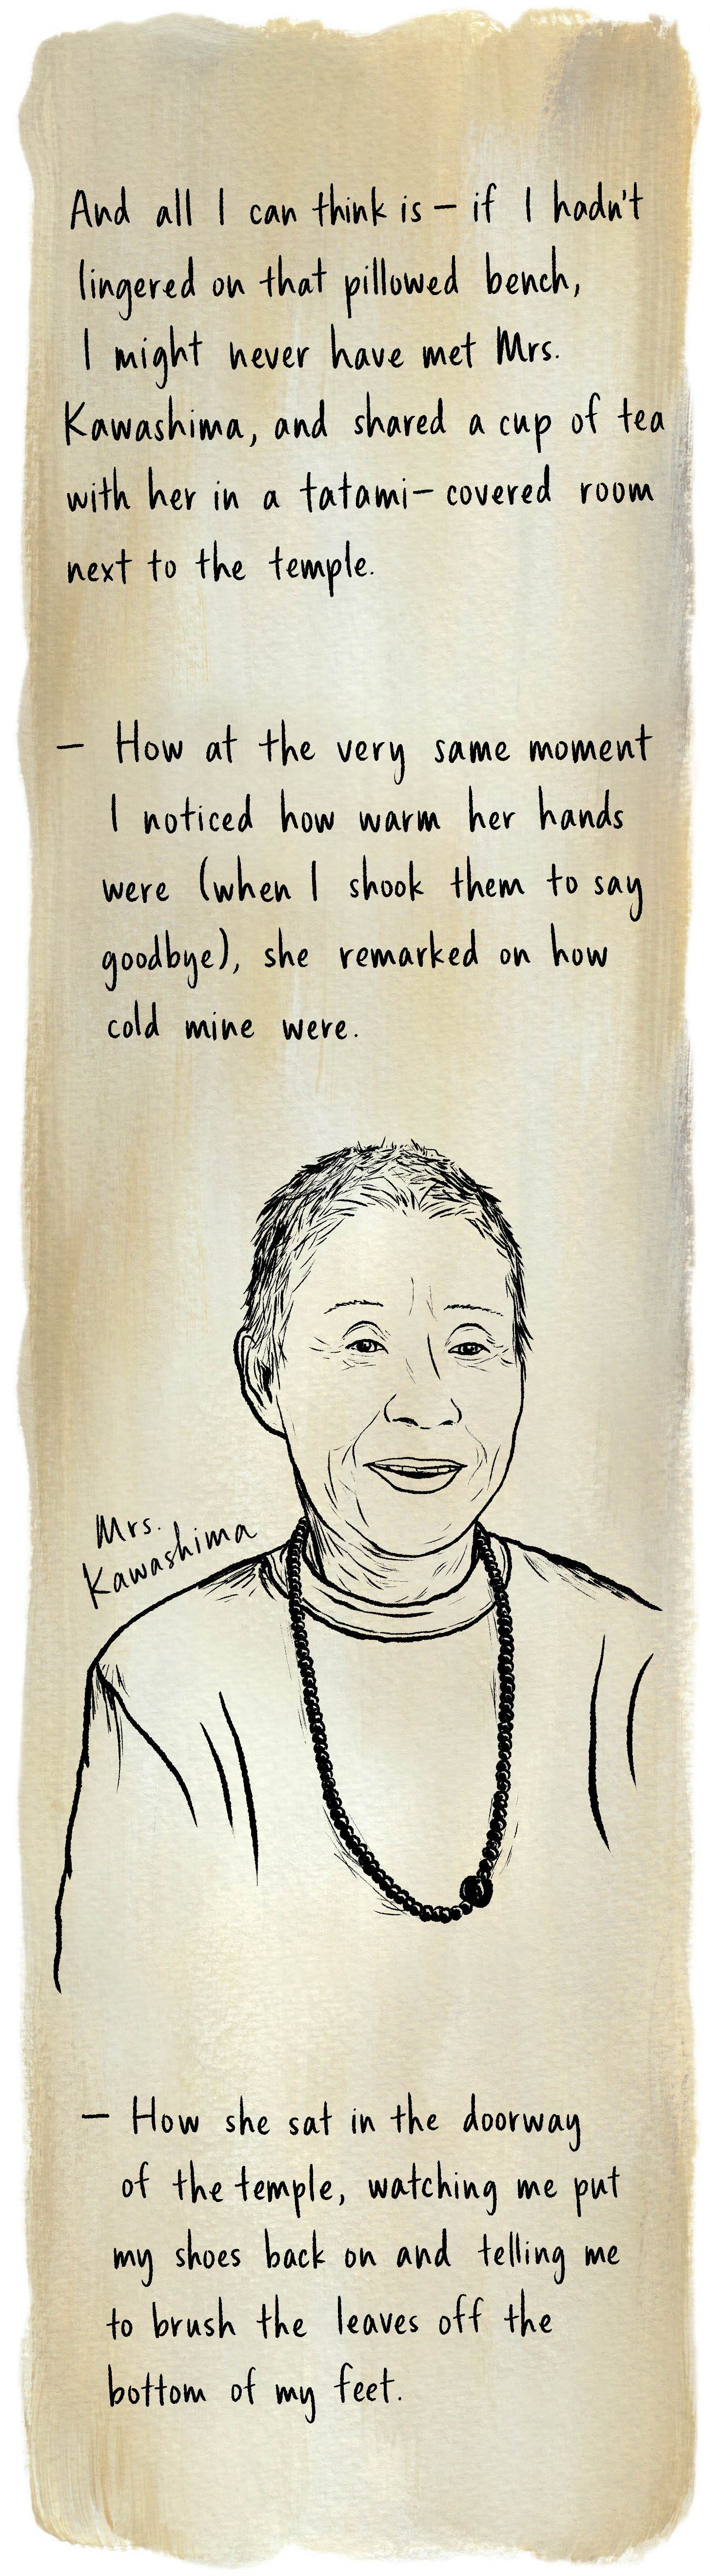 And all I can think is – if I hadn't
lingered on that pillowed bench,
I might never have met Mrs.
Kawashima, and shared a cup of tea
with her in a tatami-covered room
next to the temple.
– How at the very same moment
I noticed how warm her hands
were (when I shook them to say
goodbye), she remarked on how
cold mine were.
Mrs.
Kawashima
– How she sat in the doorway
of the temple, watching me put
my shoes back on and telling me
to brush the leaves off the
bottom of my feet.